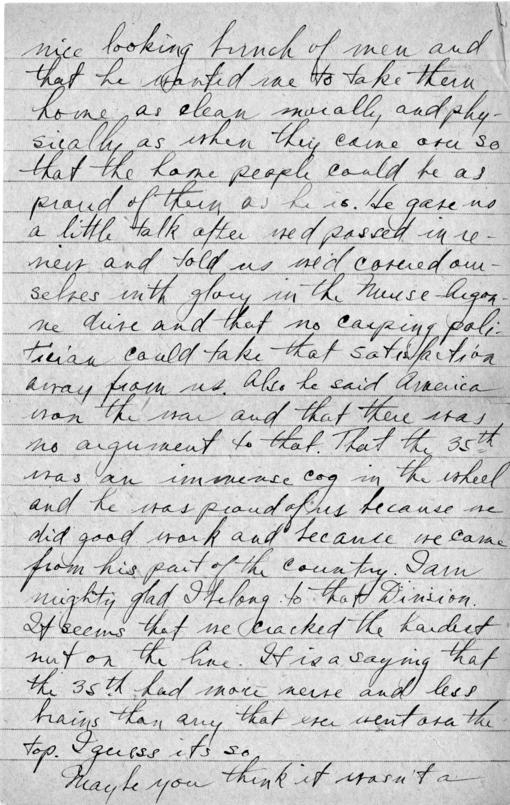 nice looking bunch of men and
that he wanted me to take them
home as clean morally and phy-
sically as when they came over so
that the home people could be as
proud of them as he is. He gave us
a little talk after we'd passed in re-
view and told us we'd covered our-
selves with glory in the Meuse-Argon-
ne drive and that no carping poli-
tician could take that satisfaction
away from us. Also he said America
won the war and that there was
no argument to that. That the 35th
was an immense cog in the wheel
and he was proud of us because we
did good work and because we came
from his part of the country. I am
mighty glad I belong to that Division.
It seems that we cracked the hardest
nut on the line. It is a saying that
the 35th had more nerve and less
brains than any that ever went over the
top. I guess its so.
Maybe you think it wasn't a